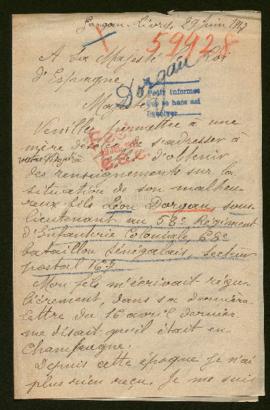 Gargan-Livry, 29 juin 1917
59928
A Sa Majesté le Roi
d'Espagne
Dorgan
Majesté
Veuillez permettre à une
mère désolée de s'adresser à
d'obtenir
des renseignements sur la
situation de son malheu-
reux fils Léon Dorgan, sous-
lieutenant au 58e Régiment
d'Infanterie Coloniale, 68e
bataillon Sénégalais, secteur
postal
Mon fils m'écrivait régu-
lièrement, dans sa dernière
lettre du 16 avril dernier
me disait qu'il était en
Champagne.
Depuis cette époque je n'ai
plus rien reçu. Je me suis